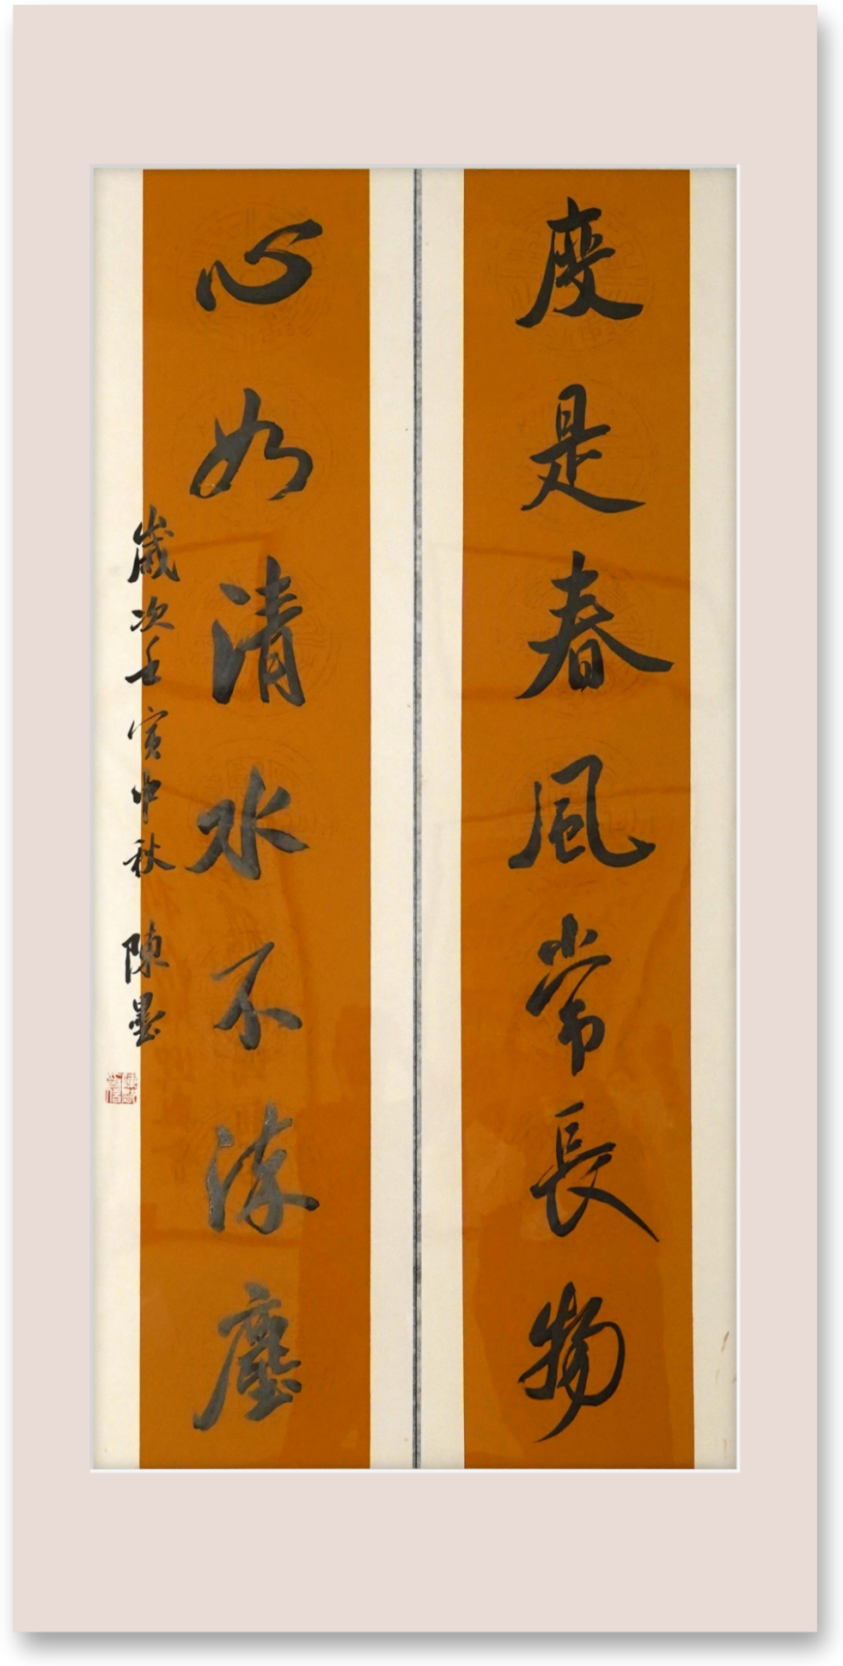 度是春風常長物
心如清水不染塵
歲次壬寅中秋 陳墨